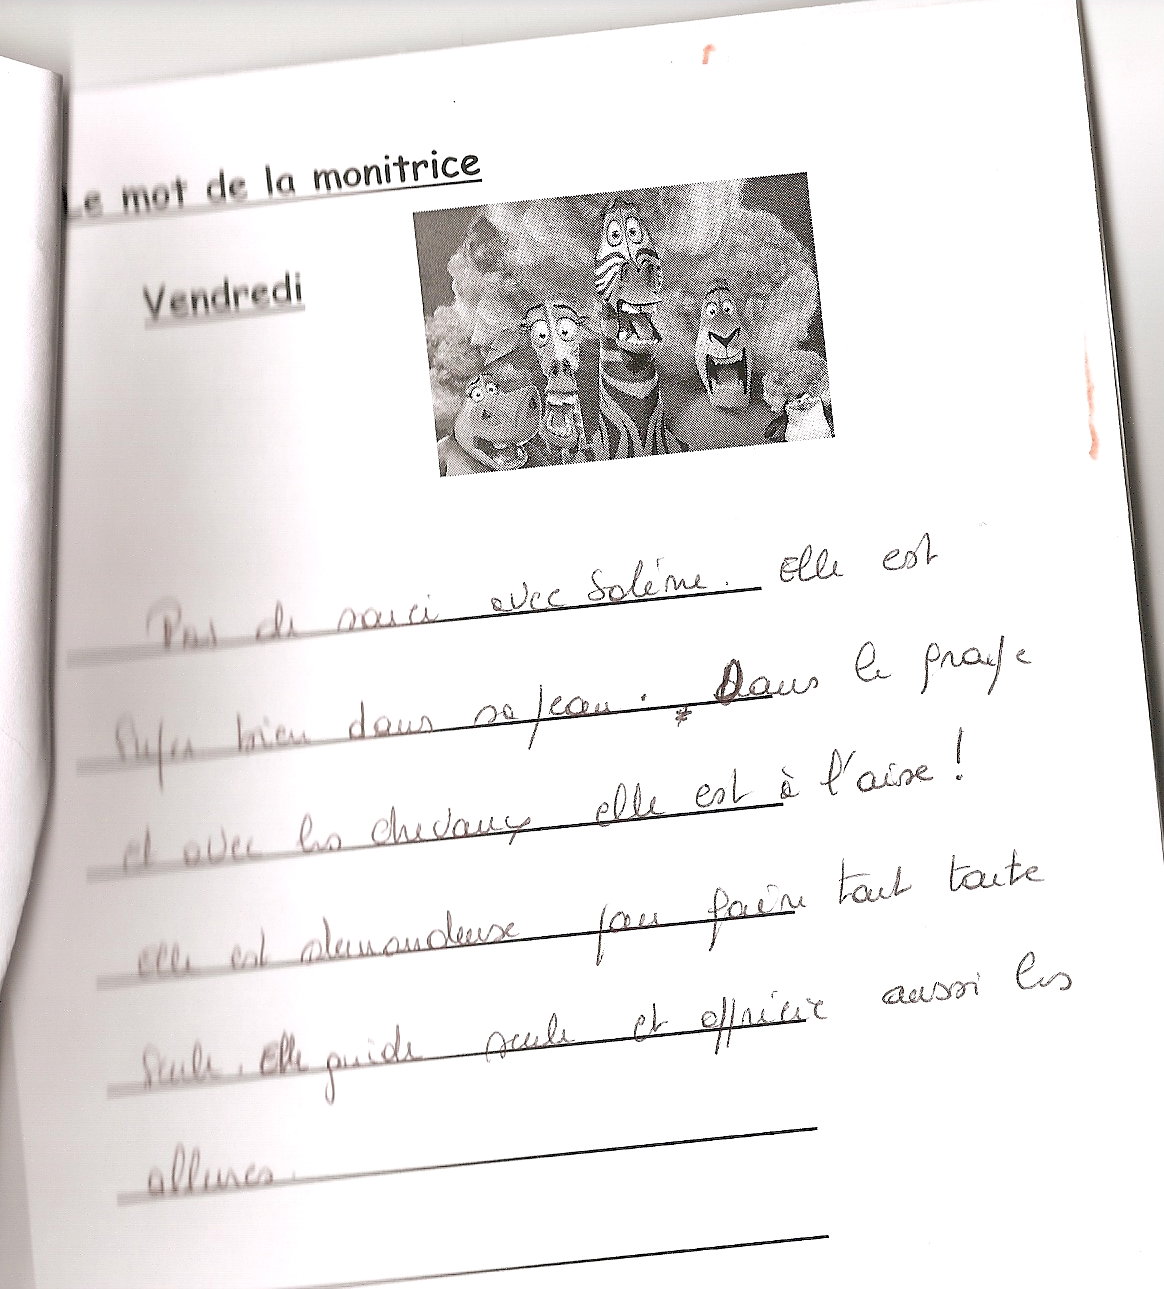 Le mot de la monitrice
Vendredi
Pas de souci avec Solène. Elle est
super bien dans sa peau. * Dans le groupe
et avec les chevaux elle est à l'aise !
elle est demandeuse pour faire tout toute
seule. Elle guide seule et apprécie aussi les
allures.